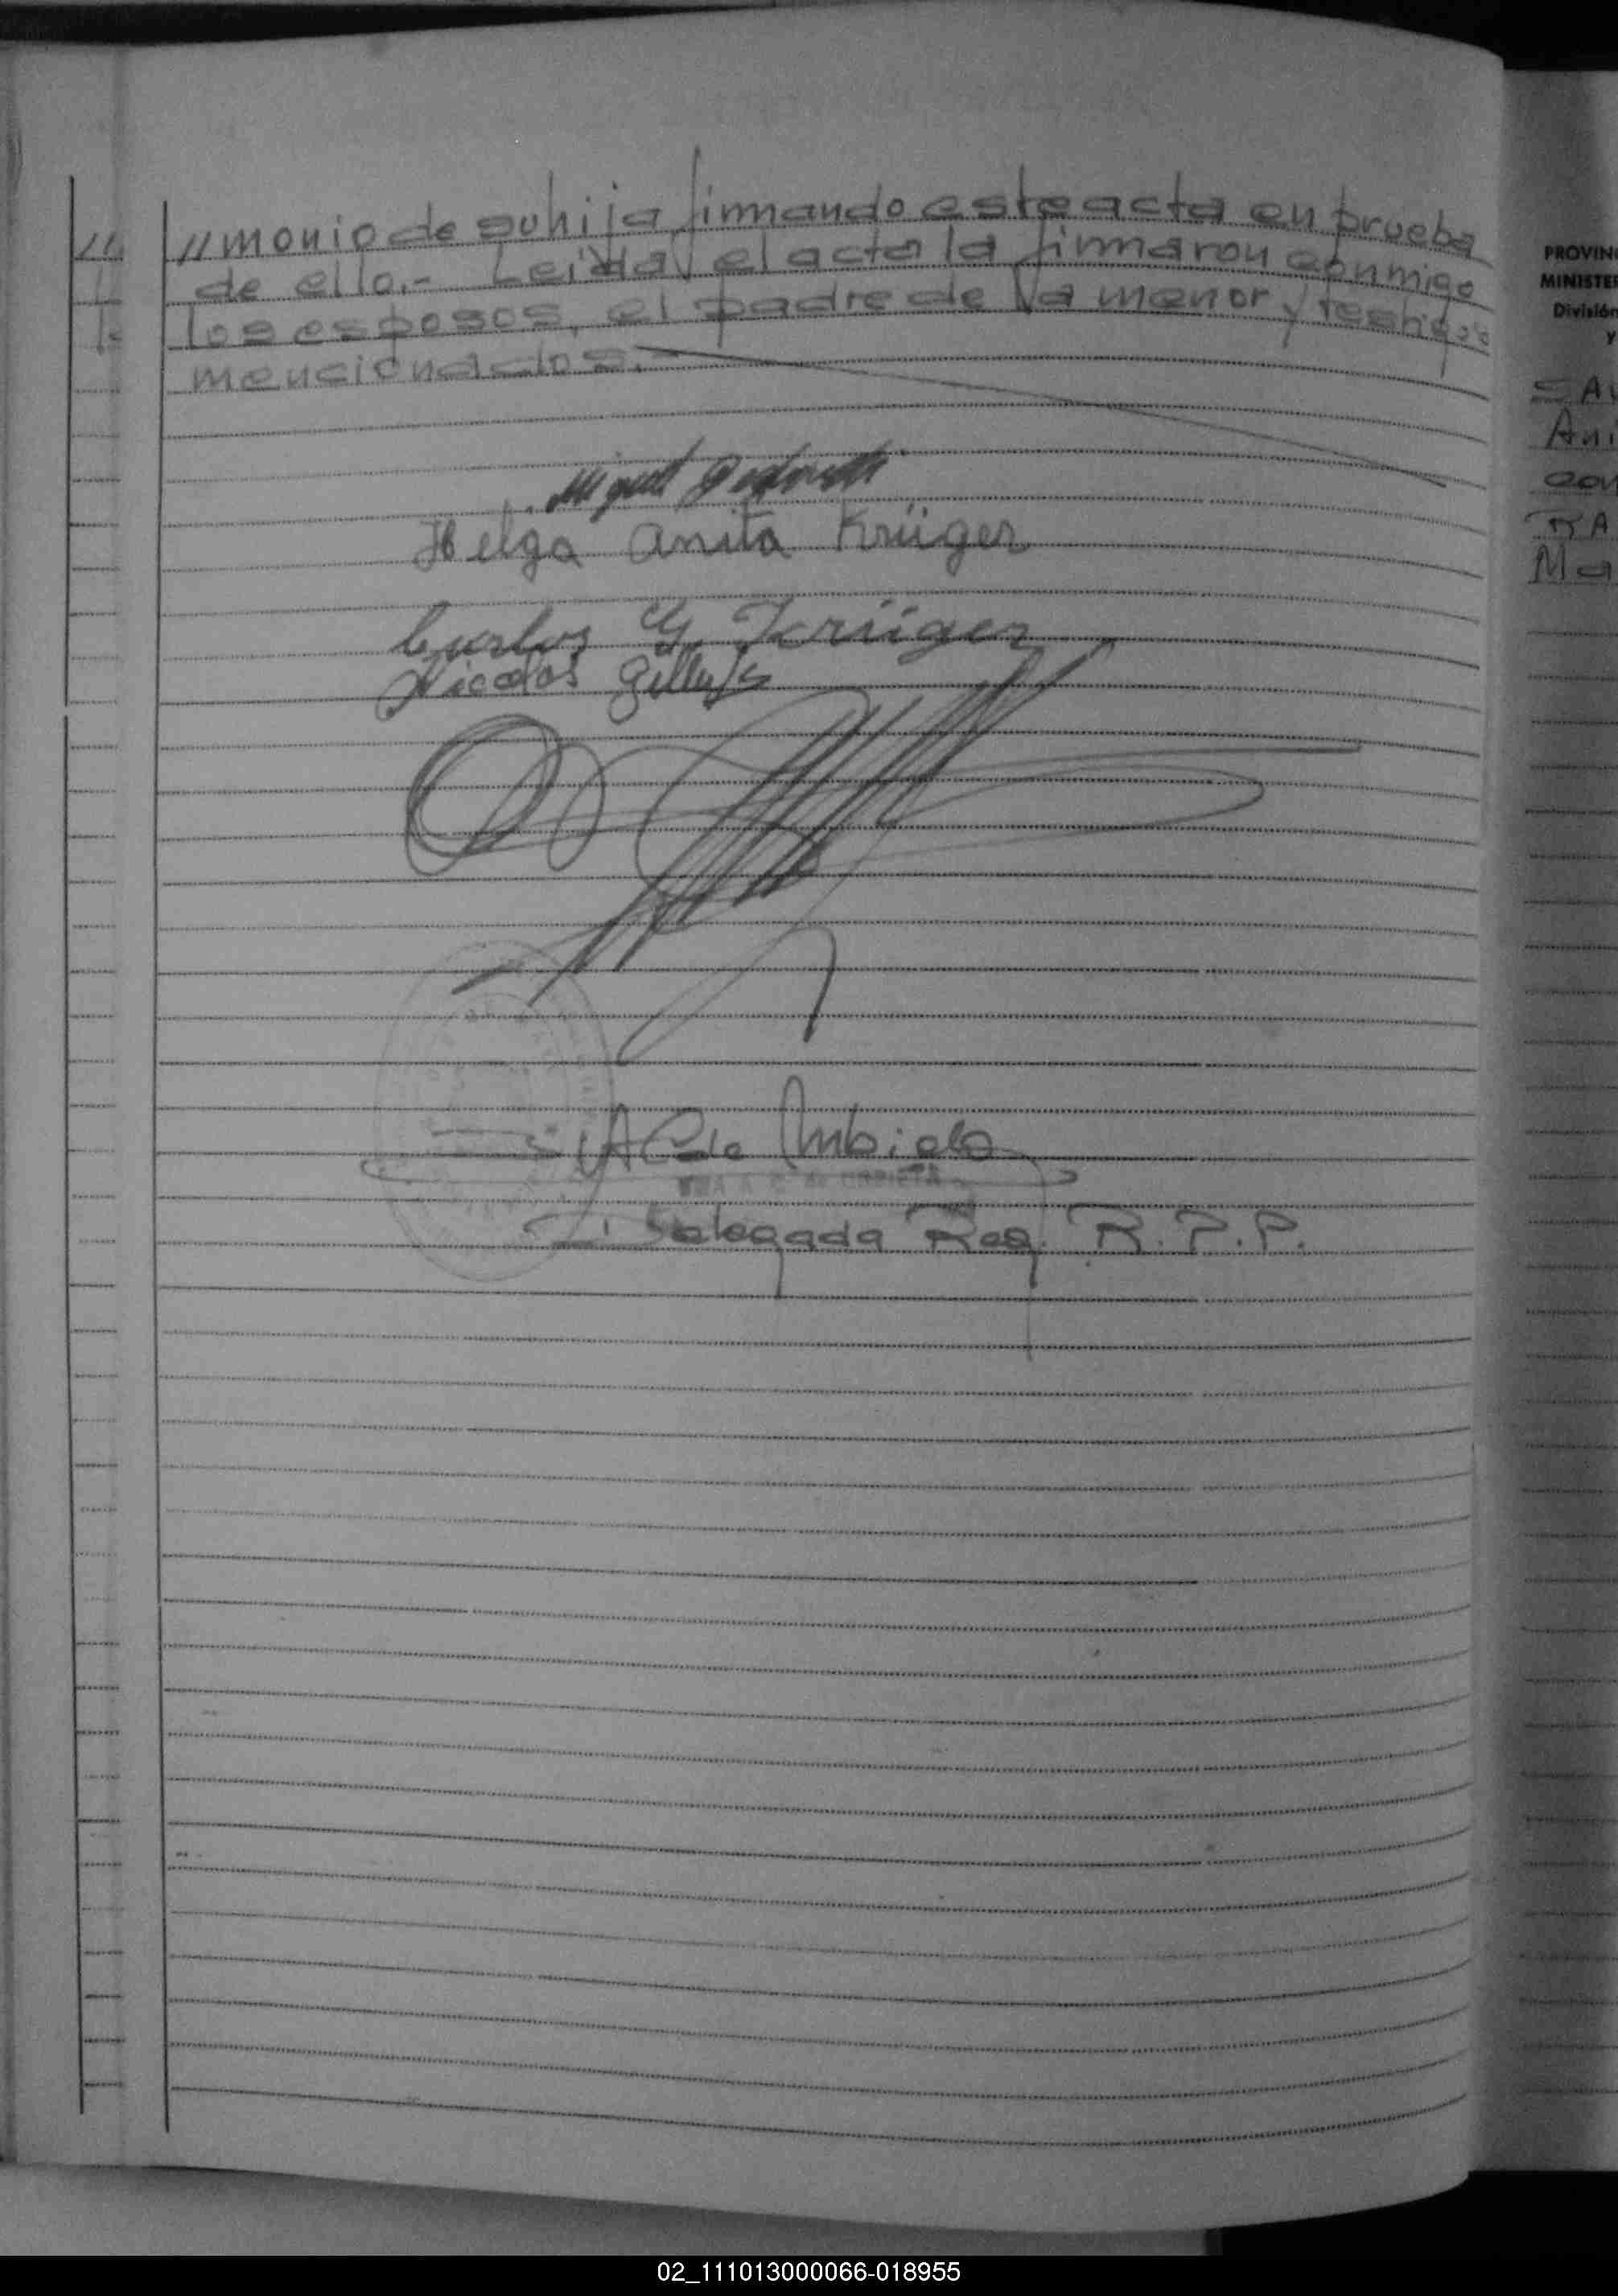 //monio de su hija, firmando este acta en prueba
de ello.- Leída el acta la firmaron conmigo
los esposos, el padre de la menor y testigos
mencionados.-
Miguel
Helga Anita Krüger
Carlos G. Krüger
Nicolas
A C de
A. C. de URBIETA
Delegada Reg. R. P. P.
PROVIN
MINISTER
División
y
Ani
con
Ma
02_111013000066-018955